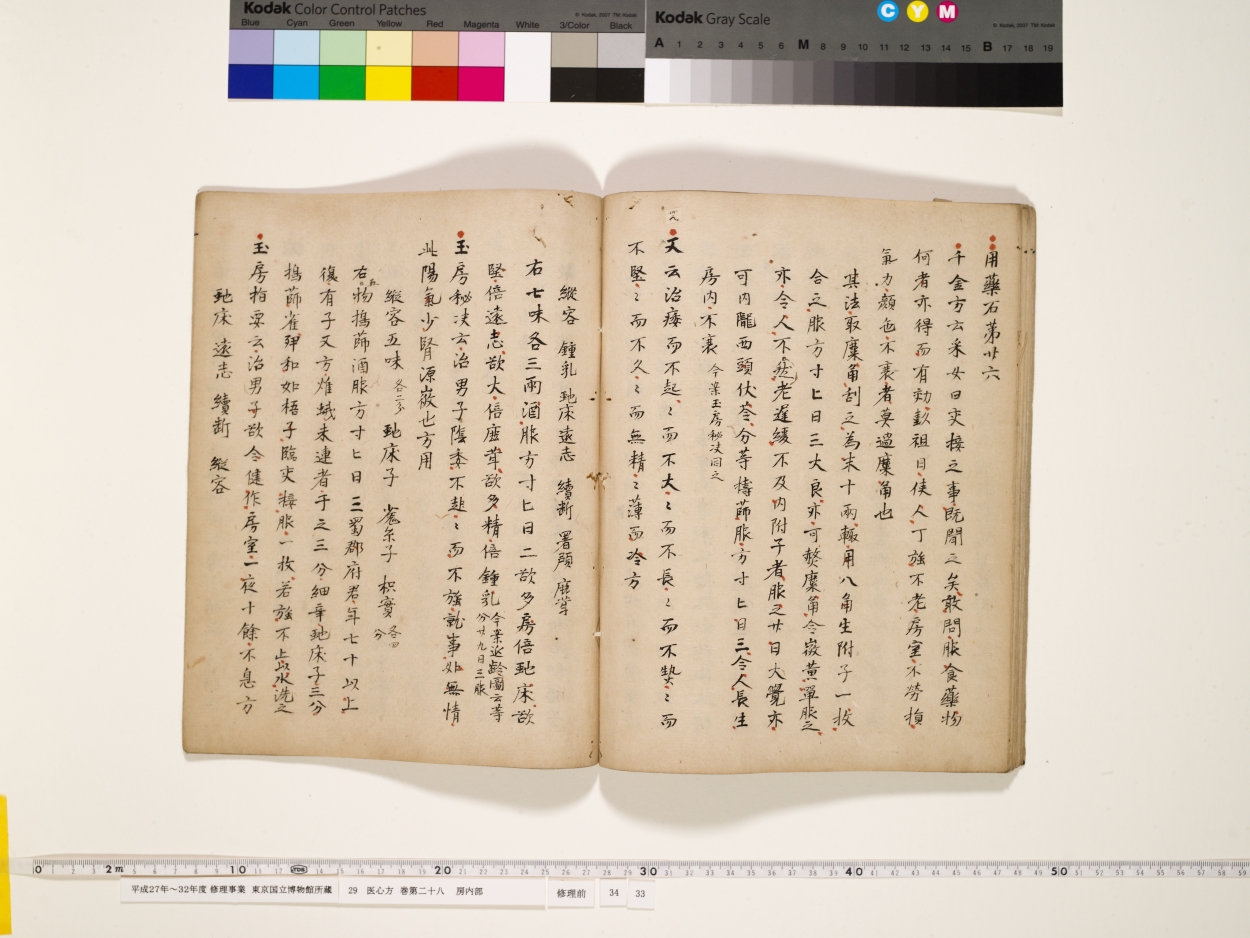 Kodak Color Control Patches
© Kodak, 2007 TM: Kodak
Blue Cyan Green Yellow Red Magenta White 3/Color Black
Kodak Gray Scale
© Kodak, 2007 TM: Kodak
C Y M
A 1 2 3 4 5 6 M 8 9 10 11 12 13 14 15 B 17 18 19
用藥石第廿六
千金方云采女曰交接之事既聞之矣敢問服食藥物
何者亦得而有効彭祖曰使人丁強不老房室不勞損
氣力顔色不衰者莫過麋角也
其法取麋角刮之為末十兩輙用八角生附子一枚
合之服方寸匕日三大良亦可熬麋角令微黄單服之
亦令人不老遲緩不及内附子者服之廿日大覺亦
可内隴西頭伏苓分等擣篩服方寸匕日三令人長生
房内不衰 今案玉房秘决同之
又云治痿而不起〻而不大〻而不長〻而不熱〻而
不堅〻而不久〻而無精〻薄而冷方
縱容 鍾乳 虵床 遠志 續断 署預 鹿茸
右七味各三兩酒服方寸匕日二欲多房倍虵床欲
堅倍遠志欲大倍鹿茸欲多精倍鍾乳 今案延齡圖云等分廿九日三服
玉房秘决云治男子陰委不起〻而不強就事如無情
此陽氣少腎源微也方用
縱容 五味 各二分 虵床子 菟糸子 枳實 各四分
右五物擣篩酒服方寸匕日三蜀郡府君年七十以上
復有子又方雄蛾未連者干之三分細辛虵床子三分
擣篩雀卵和如梧子臨交接服一枚若強不止以水洗之
玉房指要云治男子欲令健作房室一夜十餘不息方
虵床 遠志 續断 縱容
0 2m 10 20 30 40 50
平成27年～32年度 修理事業 東京国立博物館所蔵 29 医心方 巻第二十八 房内部 修理前 34 33